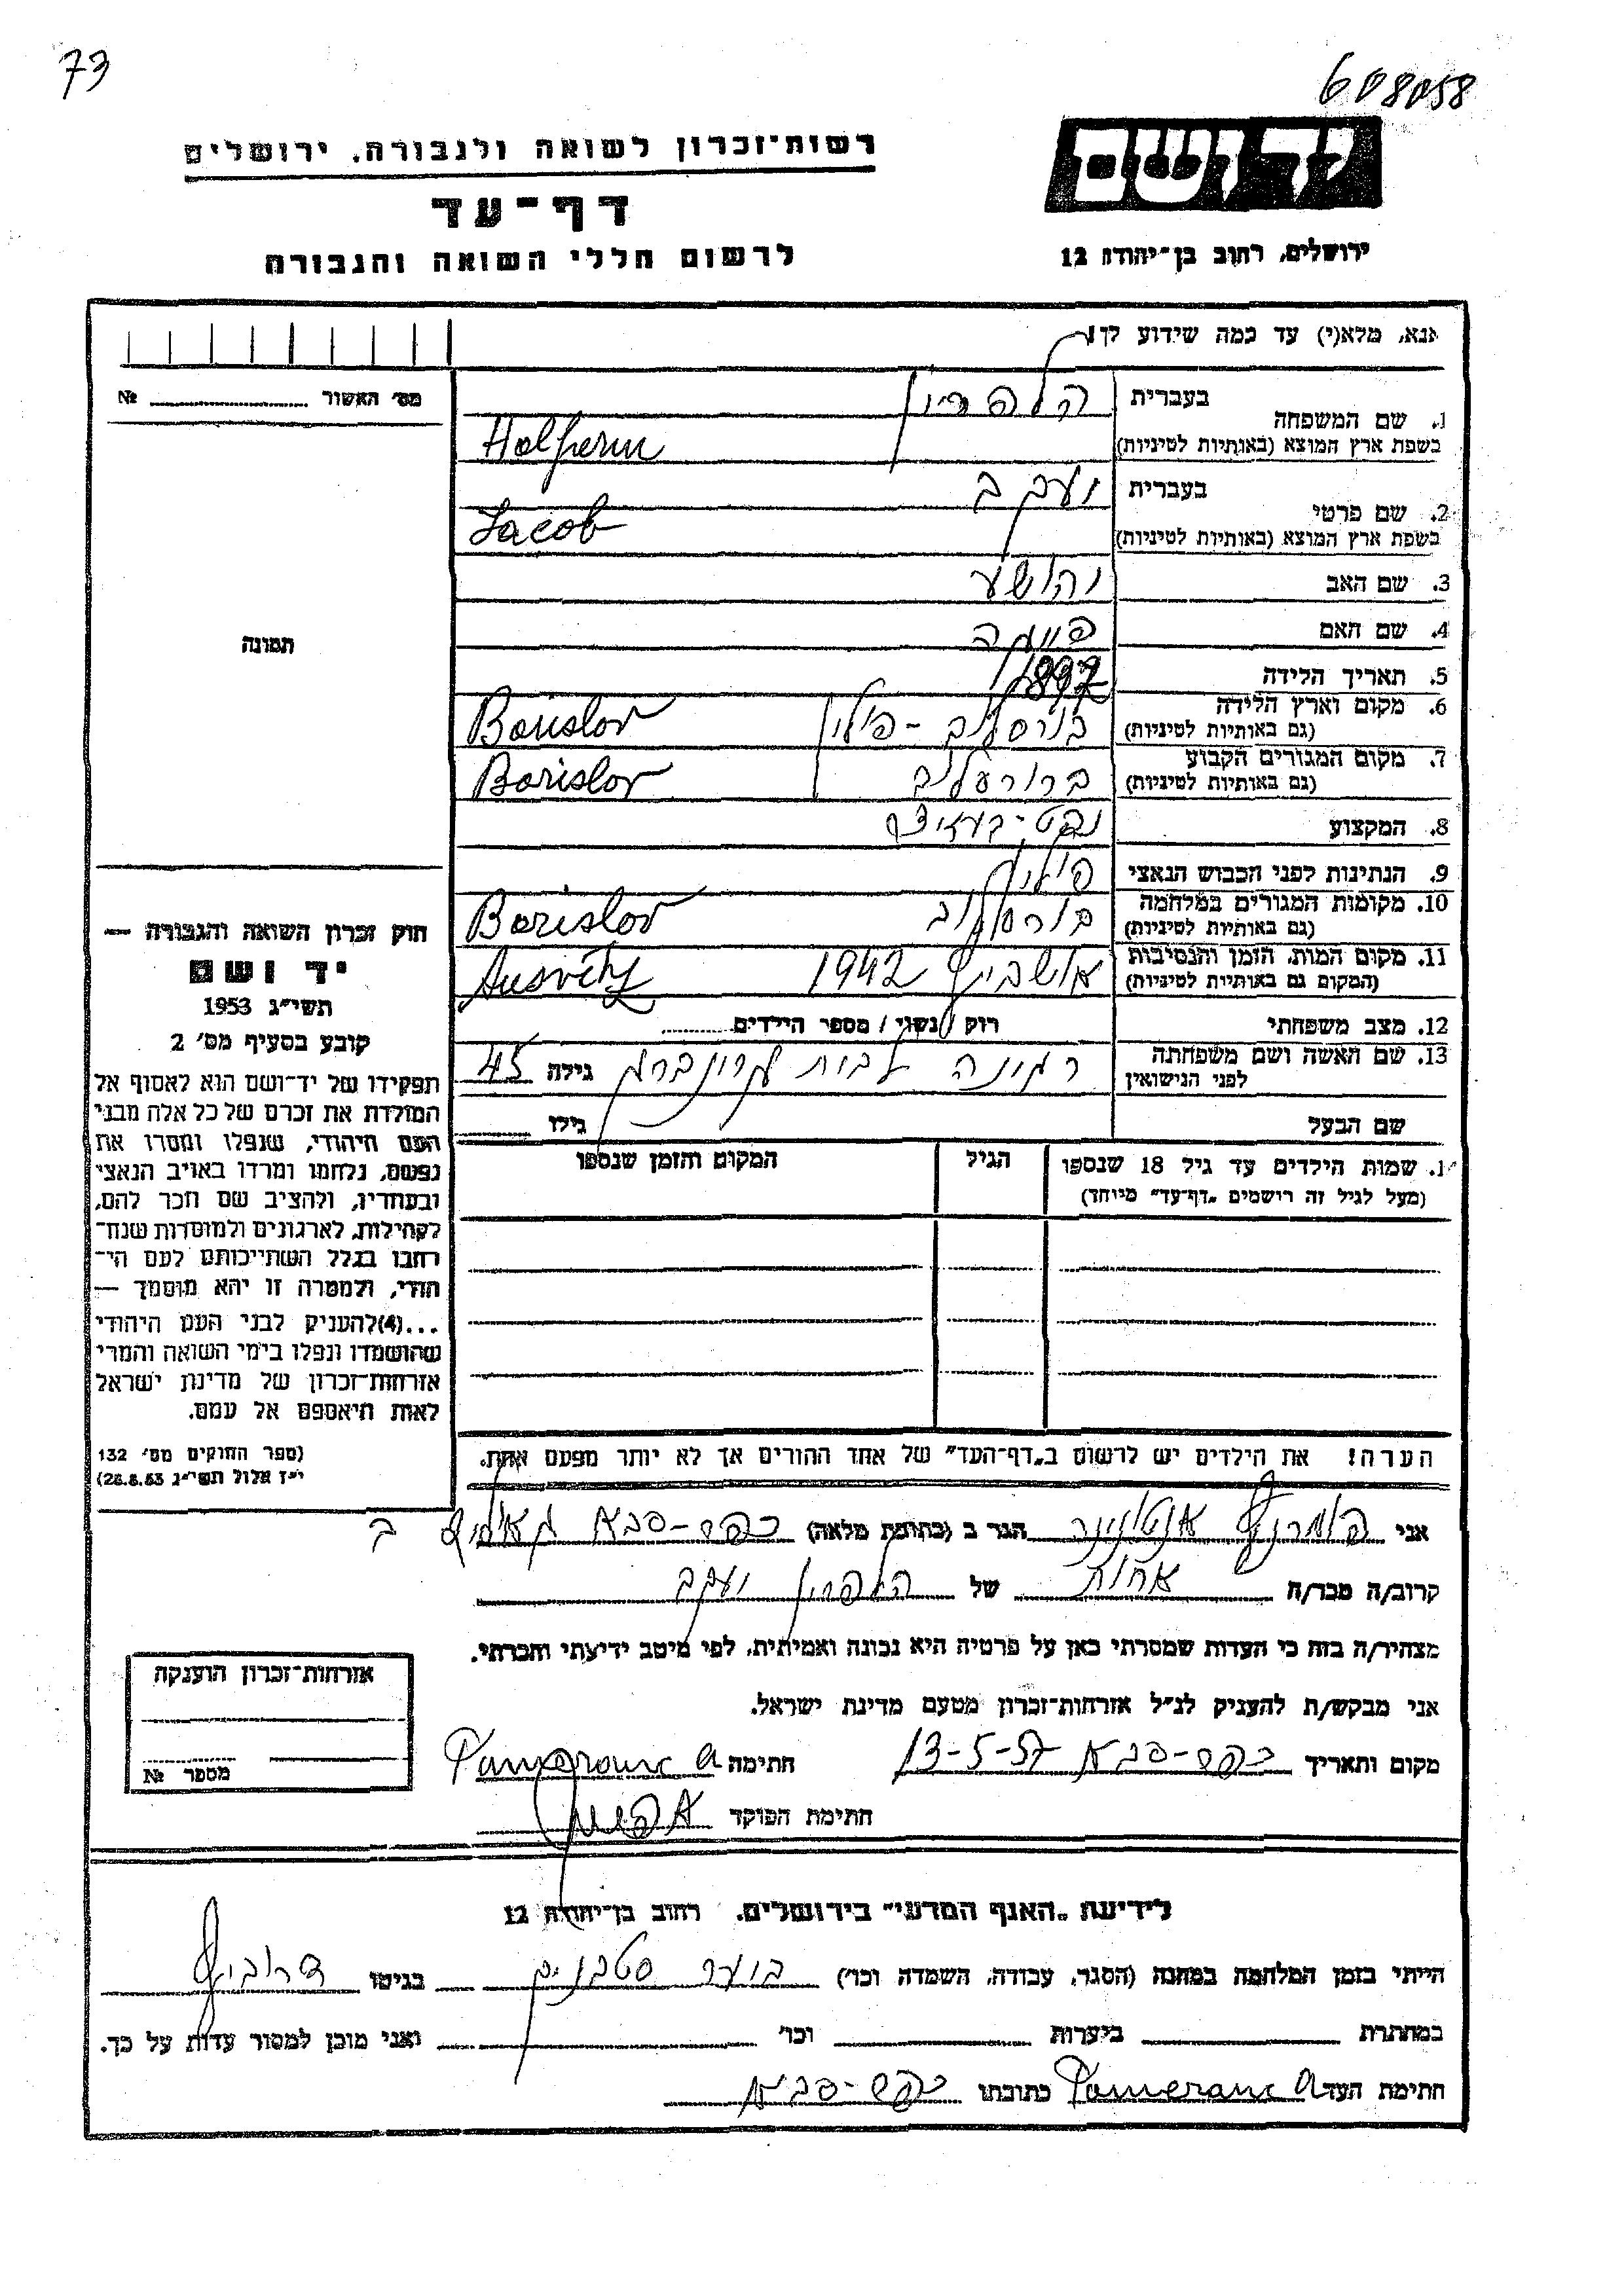 73
608058
יד ושם
רשות־זכרון לשואה ולגבורה, ירושלים
דף־עד
לרשום חללי השואה והגבורה
ירושלים, רחוב בן־יהודה 12
אנא, מלא(י) עד כמה שידוע לך!
מס' האשור № 
1. שם המשפחה
בעברית הלפרין
בשפת ארץ המוצא (באותיות לטיניות) Halpern
2. שם פרטי
בעברית יעקב
בשפת ארץ המוצא (באותיות לטיניות) Jacob
3. שם האב יהושע
4. שם האם
תמונה
5. תאריך הלידה 1897
6. מקום וארץ הלידה
(גם באותיות לטיניות) בורסלוב - פולין Borislov
7. מקום המגורים הקבוע
(גם באותיות לטיניות) Borislov
8. המקצוע
9. הנתינות לפני הכבוש הנאצי
10. מקומות המגורים במלחמה
(גם באותיות לטיניות) בורסלוב Borislov
11. מקום המות, הזמן והנסיבות
(המקום גם באותיות לטיניות) אושביץ 1942 Ausvitz
12. מצב משפחתי רוק / נשוי / מספר הילדים
13. שם האשה ושם משפחתה
לפני הנישואין רגינה לבית גרונברג גילה 45
שם הבעל גילו
1. שמות הילדים עד גיל 18 שנספו
(מעל לגיל זה רושמים "דף־עד" מיוחד)
הגיל
המקום והזמן שנספו
חוק זכרון השואה והגבורה —
יד ושם
תשי"ג 1953
קובע בסעיף מס' 2
תפקידו של יד־ושם הוא לאסוף אל
המולדת את זכרם של כל אלה מבני
העם היהודי, שנפלו ומסרו את
נפשם, נלחמו ומרדו באויב הנאצי
ובעוזריו, ולהציב שם וזכר להם,
לקהילות, לארגונים ולמוסדות שנח־
רחבו בגלל השתייכותם לעם הי־
הודי, ולמטרה זו יהא מוסמך —
...(4)להעניק לבני העם היהודי
שהושמדו ונפלו בימי השואה והמרי
אזרחות־זכרון של מדינת ישראל
לאות היאספם אל עמם.
(ספר החוקים מס' 132
י"ז אלול תשי"ג 28.8.53)
הערה! את הילדים יש לרשום ב"דף־העד" של אחד ההורים אך לא יותר מפעם אחת.
אני פומרנץ אנטונינה הגר ב (כתובת מלאה) כפר-סבא
קרוב/ה מכר/ה אחות של הלפרין יעקב
מצהיר/ה בזה כי העדות שמסרתי כאן על פרטיה היא נכונה ואמיתית, לפי מיטב ידיעתי והכרתי.
אני מבקש/ת להעניק לנ"ל אזרחות־זכרון מטעם מדינת ישראל.
מקום ותאריך כפר-סבא 13-5-57 חתימה Pomeranc A
חתימת הפוקד
אזרחות־זכרון הוענקה
מספר №
לידיעת "האגף המדעי" בירושלים, רחוב בן־יהודה 12
הייתי בזמן המלחמה במחנה (הסגר, עבודה, השמדה וכו') בגיטו
במחתרת ביערות וכו' ואני מוכן למסור עדות על כך.
חתימת העד Pomeranc A כתובתו כפר-סבא